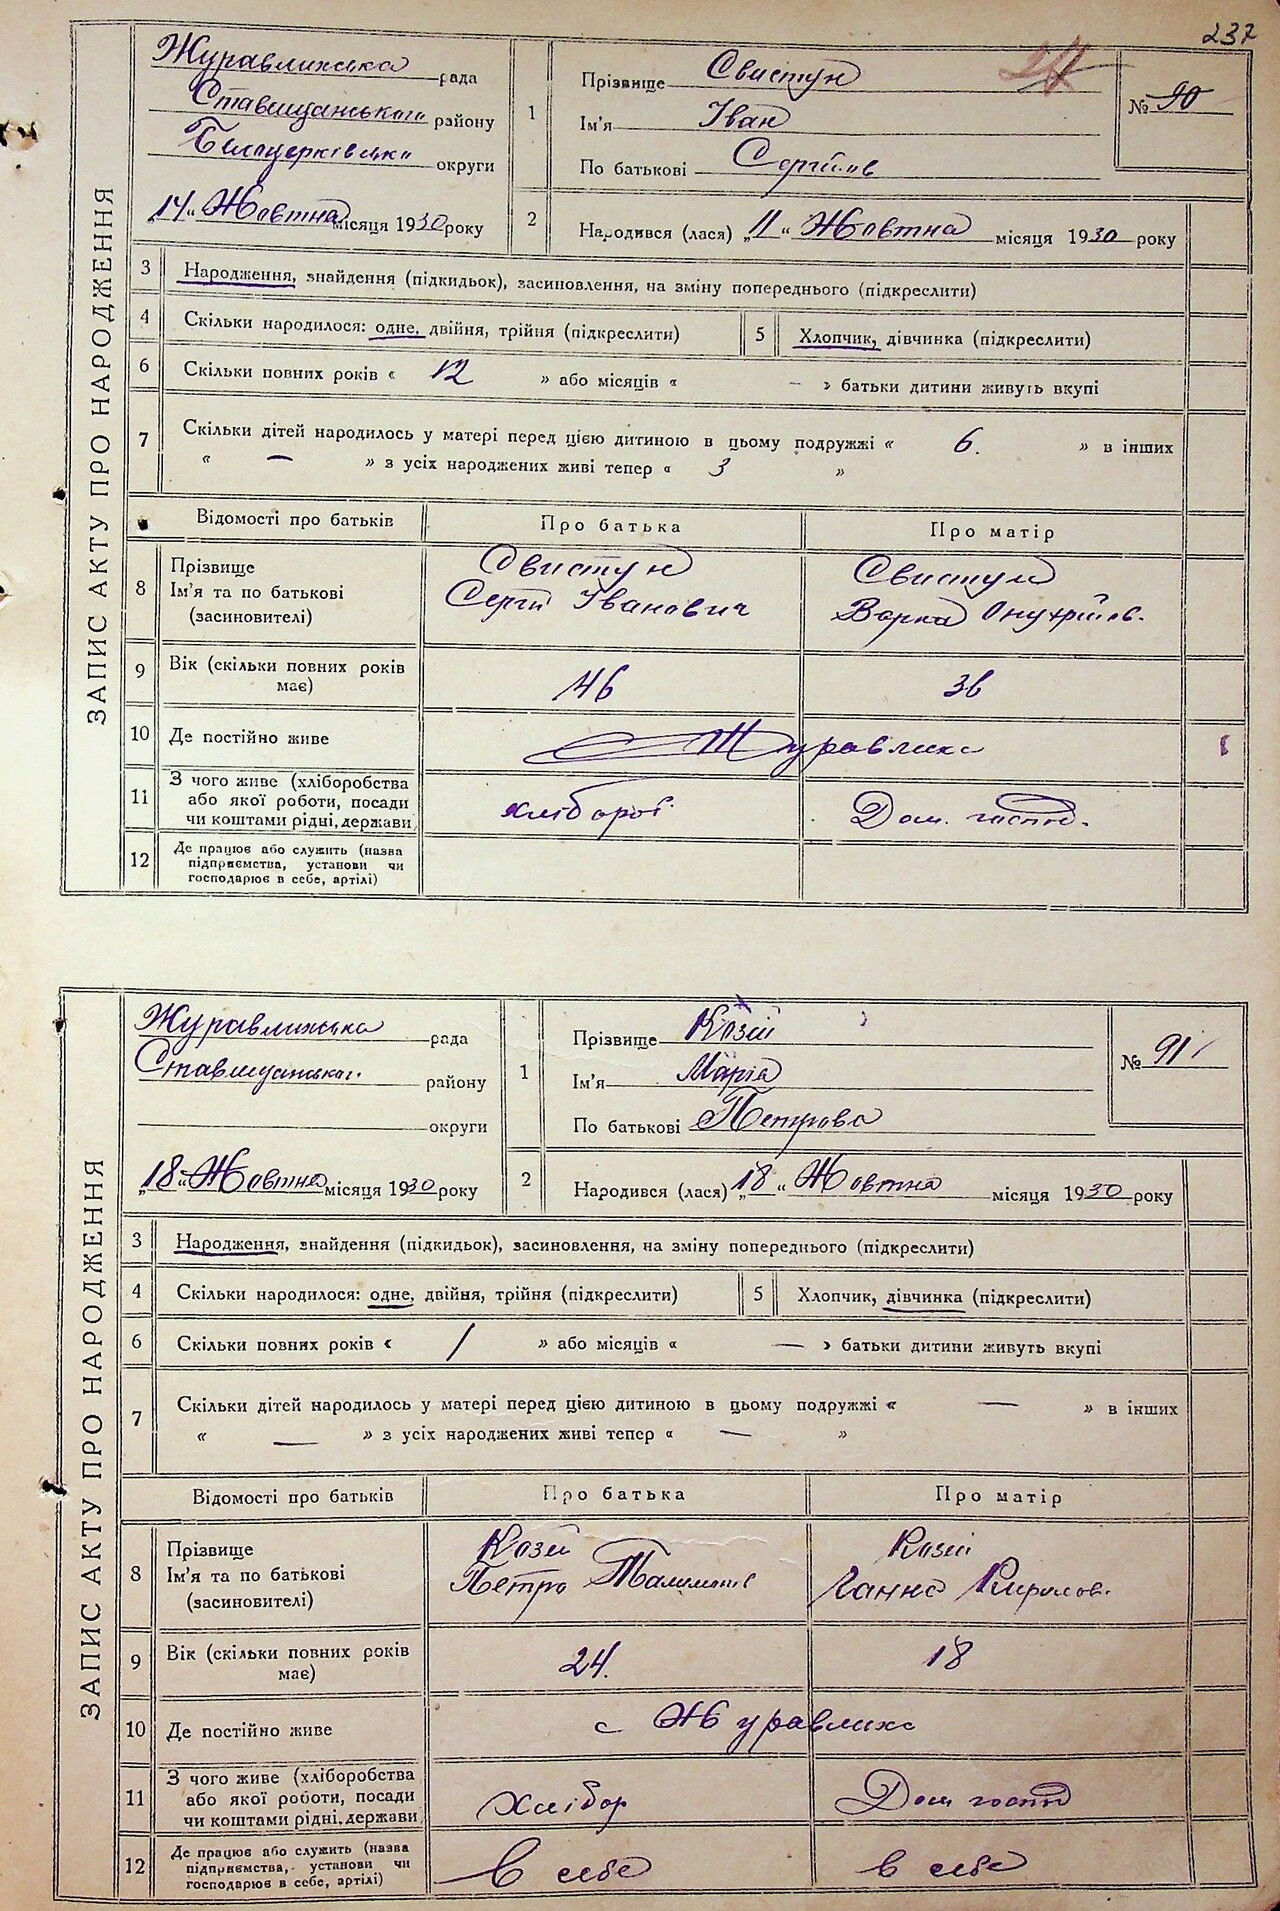 237
ЗАПИС АКТУ ПРО НАРОДЖЕННЯ
Журавлихська рада
Ставищанського району
Білоцерківська округи
„14“ Жовтна місяця 1930 року
1
Прізвище Свистун
Ім'я Іван
По батькові Сергіїов
№ 90
2
Народився (лася) „11“ Жовтна місяця 1930 року
3 Народження, знайдення (підкидьок), засиновлення, на зміну попереднього (підкреслити)
4 Скільки народилося: одне, двійня, трійня (підкреслити)
5 Хлопчик, дівчинка (підкреслити)
6 Скільки повних років « 12 » або місяців « – » батьки дитини живуть вкупі
7 Скільки дітей народилось у матері перед цією дитиною в цьому подружжі « 6. » в інших
« — » з усіх народжених живі тепер « 3 »
Відомості про батьків Про батька Про матір
8 Прізвище
Ім'я та по батькові
(засиновителі)
Свистун
Сергій Іванович
Свистун
Варка Онуфріїв.
9 Вік (скільки повних років
має)
46 36
10 Де постійно живе Журавлиха
11 З чого живе (хліборобства
або якої роботи, посади
чи коштами рідні, держави
хлібороб Дом. господ.
12 Де працює або служить (назва
підприємства, установи чи
господарює в себе, артілі)
ЗАПИС АКТУ ПРО НАРОДЖЕННЯ
Журавлихська рада
Ставищанськог. району
округи
„18“ Жовтна місяця 1930 року
1
Прізвище Козій
Ім'я Марія
По батькові Петрова
№ 91
2
Народився (лася) „18“ Жовтна місяця 1930 року
3 Народження, знайдення (підкидьок), засиновлення, на зміну попереднього (підкреслити)
4 Скільки народилося: одне, двійня, трійня (підкреслити)
5 Хлопчик, дівчинка (підкреслити)
6 Скільки повних років « 1 » або місяців « — » батьки дитини живуть вкупі
7 Скільки дітей народилось у матері перед цією дитиною в цьому подружжі « — » в інших
« — » з усіх народжених живі тепер « — »
Відомості про батьків Про батька Про матір
8 Прізвище
Ім'я та по батькові
(засиновителі)
Козій
Петро
Козій
Ганна Кирилов.
9 Вік (скільки повних років
має)
24. 18
10 Де постійно живе с Журавлиха
11 З чого живе (хліборобства
або якої роботи, посади
чи коштами рідні, держави
Хлібор Дом господ
12 Де працює або служить (назва
підприємства, установи чи
господарює в себе, артілі)
в себе в себе